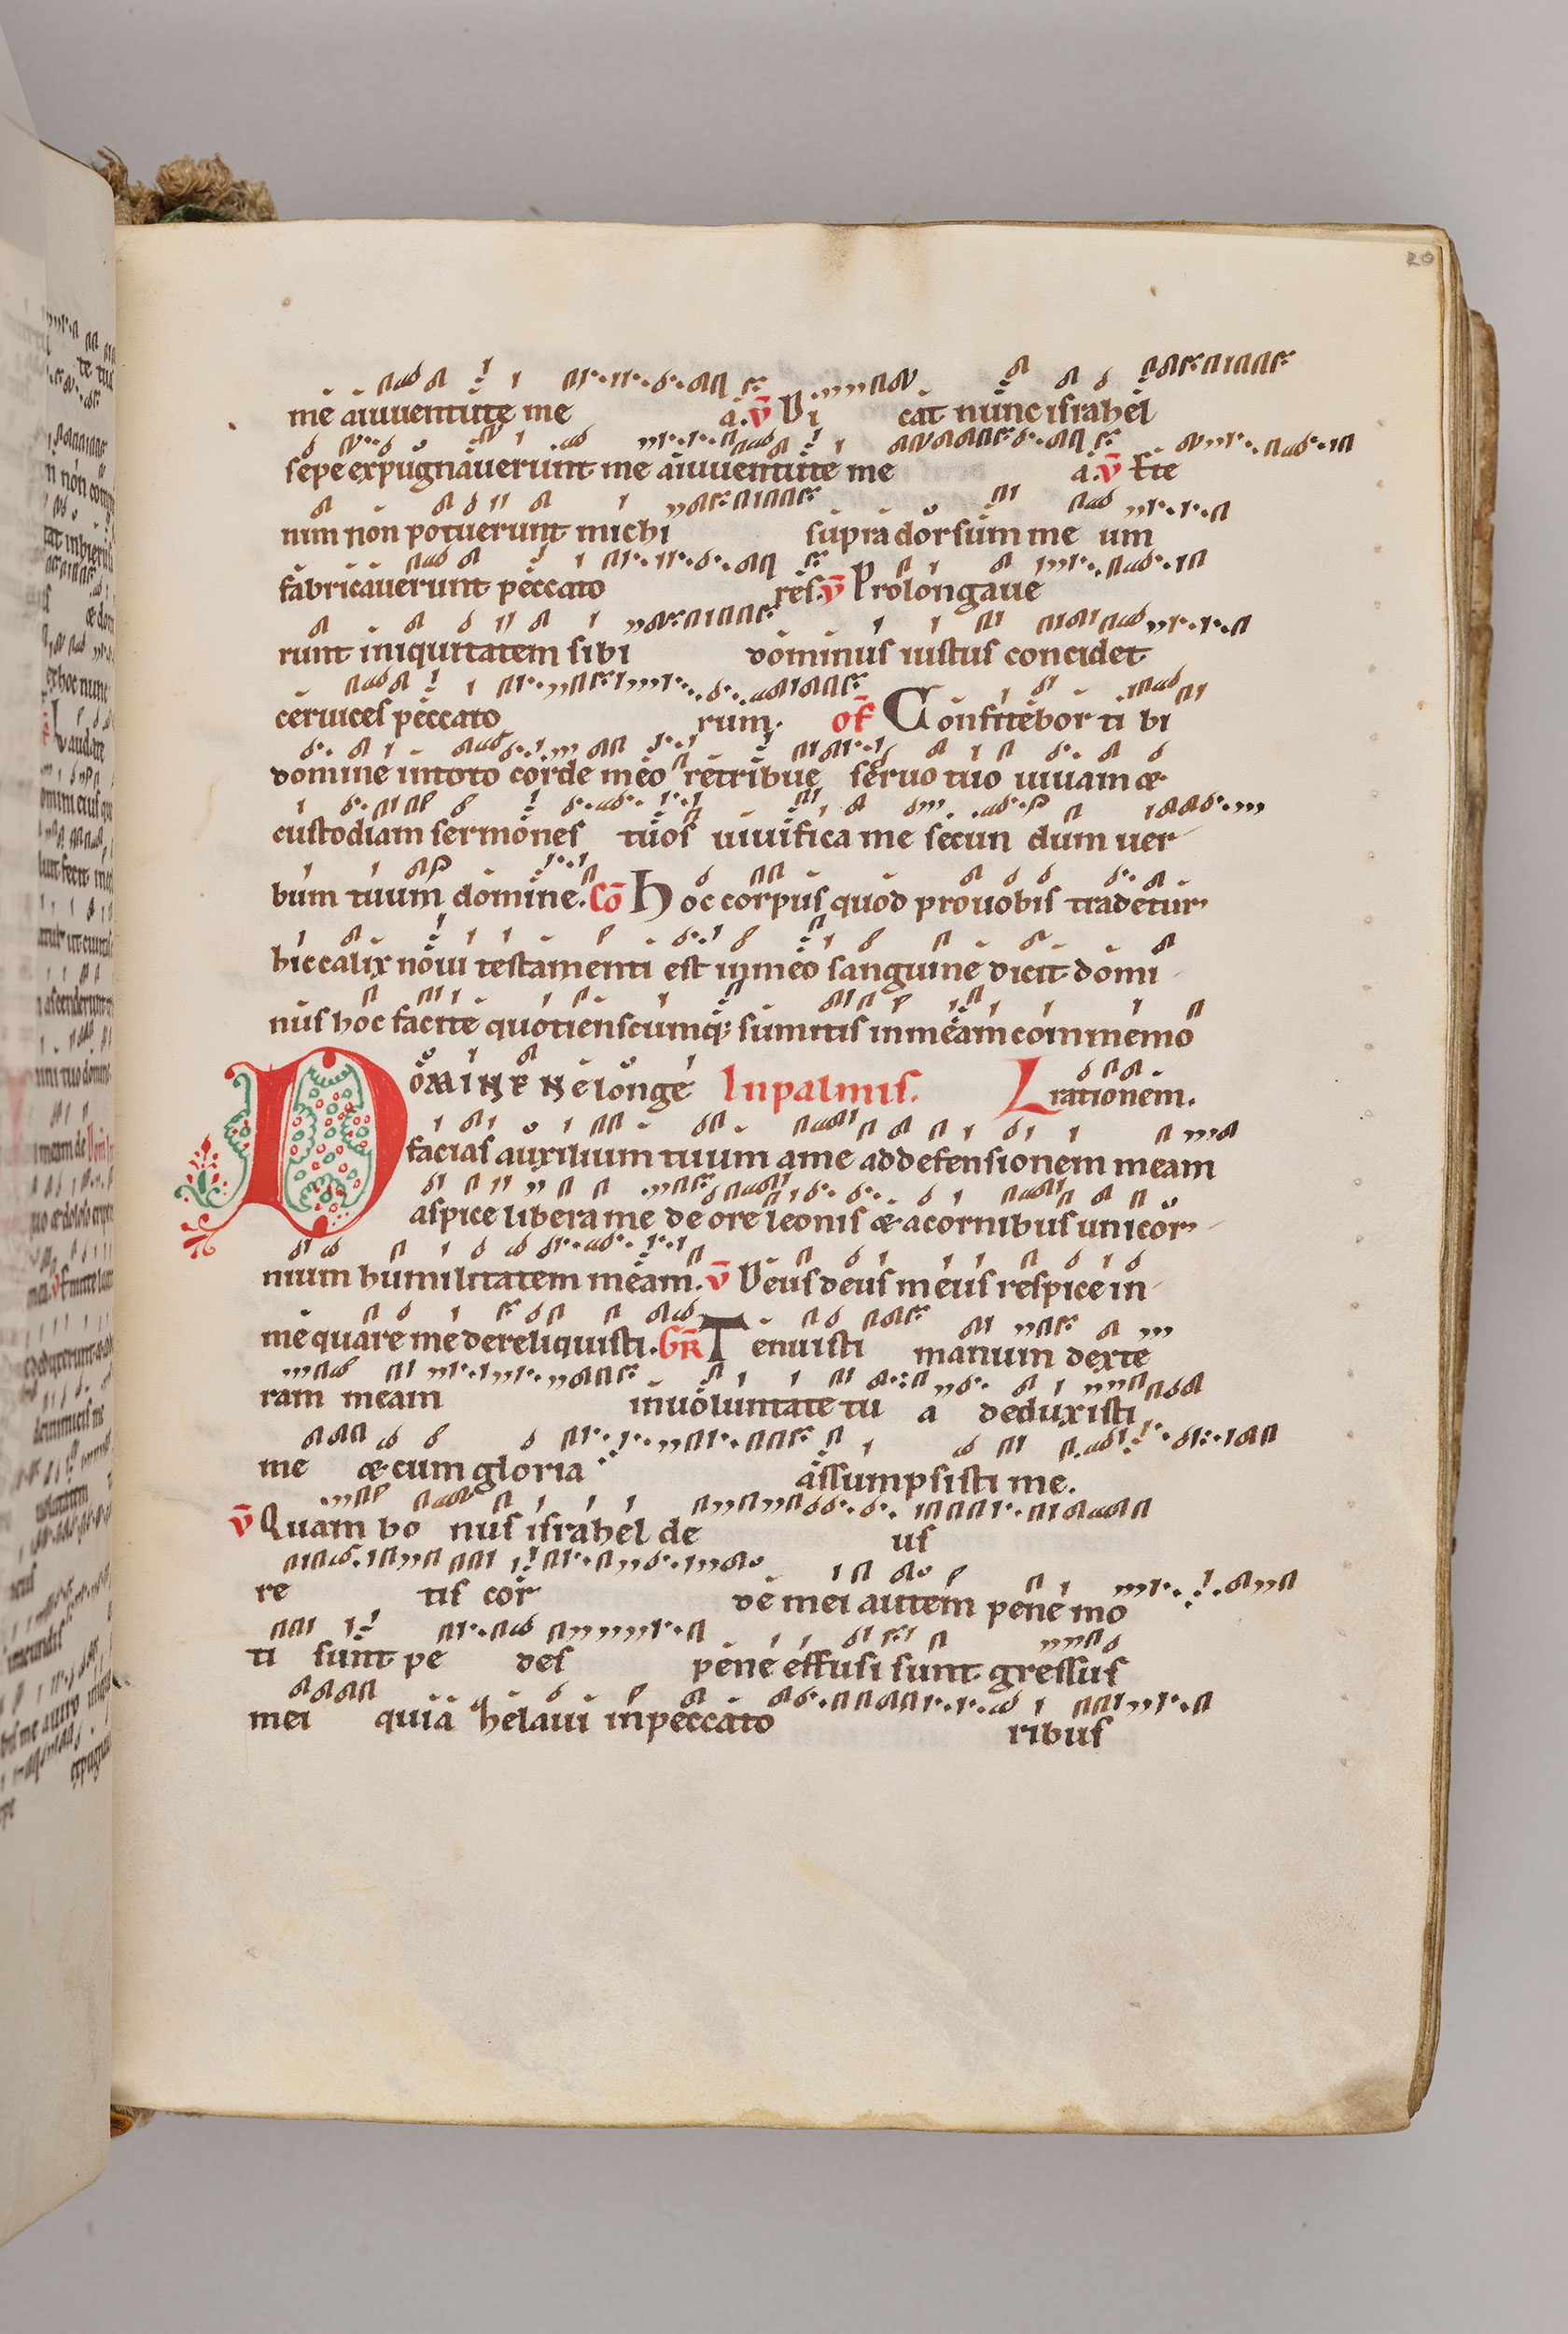 20
me aiuuentute me a. v̄ Di cat nunc israhel
sepe expugnauerunt me aiuuentute me a. v̄ Ete
nim non potuerunt michi supra dorsum me um
fabricauerunt peccato res. v̄ Prolongaue
runt iniquitatem sibi dominus iustus concidet
ceruices peccato rum. of Confitebor ti bi
domine intoto corde meo retribue seruo tuo uiuam æ
custodiam sermones tuos uiuifica me secun dum uer
bum tuum domine. Cō Hoc corpus quod prouobis tradetur
hic calix noui testamenti est inmeo sanguine dicit domi
nus hoc facite quotienscumq; sumitis inmeam commemo
DOMINE Ne longe Inpalmis. rationem.
facias auxilium tuum ame addefensionem meam
aspice libera me de ore leonis æ acornibus unicor
nium humilitatem meam. v̄ Deus deus meus respice in
me quare me dereliquisti. GR Tenuisti manum dexte
ram meam inuoluntate tu a deduxisti
me æ cum gloria assumpsisti me.
v̄ Quam bo nus israhel de us
re tis cor de mei autem pene mo
ti sunt pe des pene effusi sunt gressus
mei quia helaui inpeccato ribus